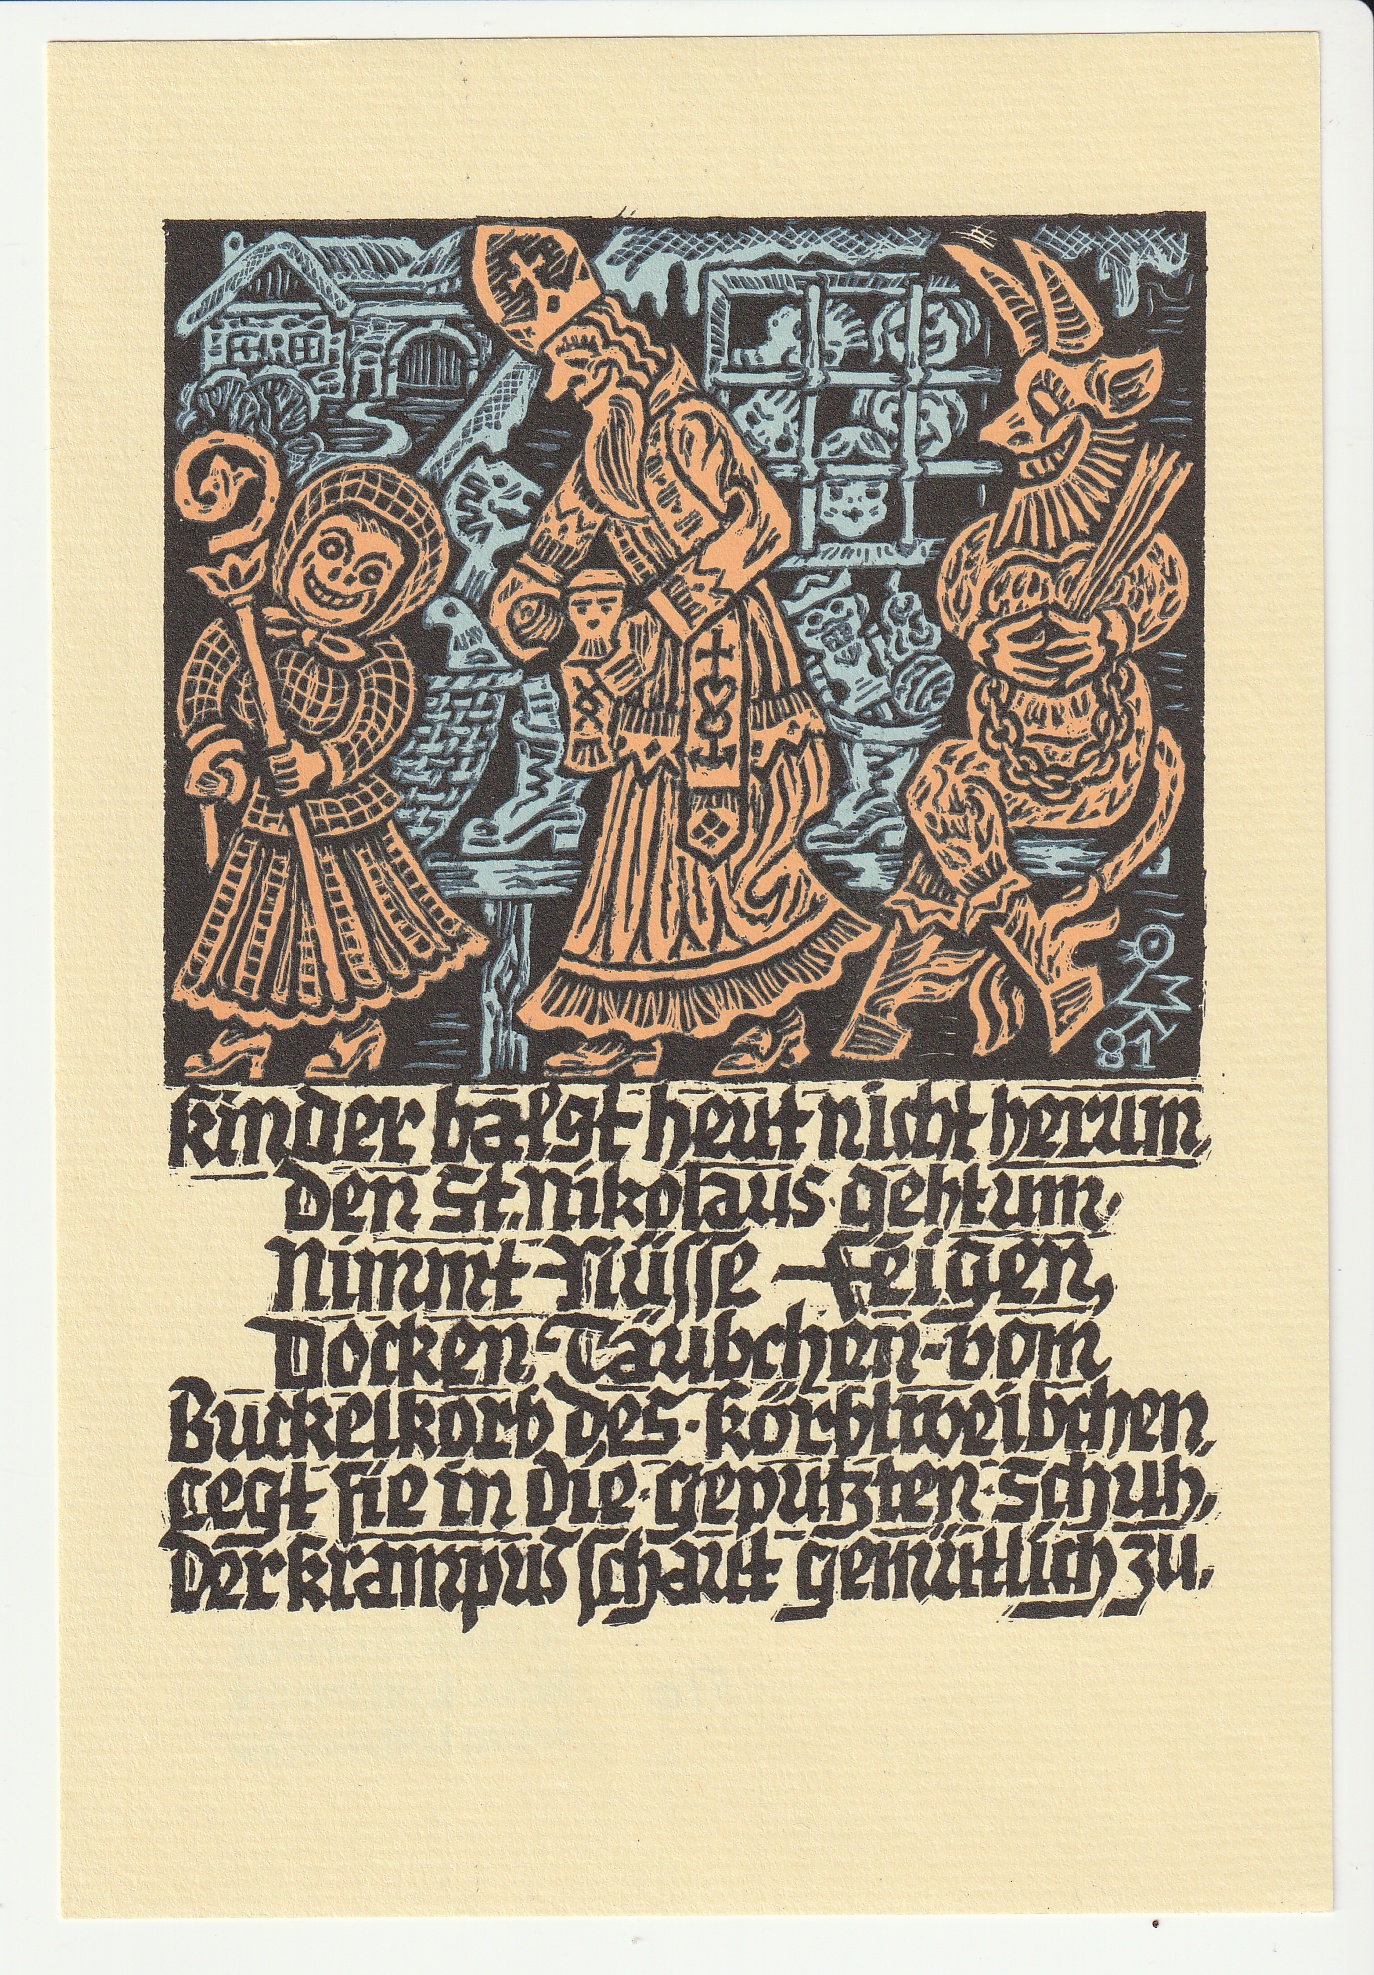 OMK
81
kinder balgt heut nicht herum,
den St. Nikolaus geht um.
Nimmt Nüsse Feigen,
Docken-Täubchen-vom
Buckelkorb des körbtweibchen,
Legt sie in die geputzten Schuh,
Der krampus schaut gemütlich zu.